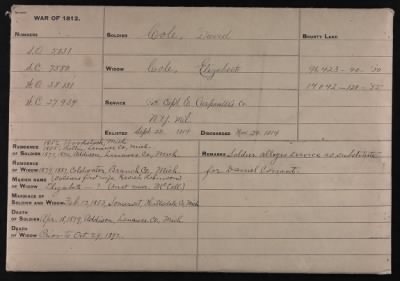 WAR OF 1812.
NUMBERS
SOLDIER Cole, David
BOUNTY LAND
S.O.
WIDOW Cole, Elizabeth
S.C.
96423-40-50
W.O. 28131
14042-120-55
W.C. 27959
SERVICE Capt. E. Carpenter's Co.
N.Y. Mil.
ENLISTED Sept. 20, 1814 DISCHARGED Nov. 29, 1814
RESIDENCE OF SOLDIER 1850, Woodstock, Mich.
1855, Rollin, Lenawee Co., Mich.
Addison, Lenawee Co., Mich.
REMARKS Soldier alleges service as substitute
for Daniel
RESIDENCE OF WIDOW 1879, 1887, Coldwater, Branch Co., Mich.
MAIDEN NAME (Soldier's first wife Keziah Robinson)
Elizabeth - ? (first mar. McColl)
MARRIAGE OF SOLDIER AND WIDOW Feb. 13, 1853, Somerset, Hillsdale Co., Mich.
DEATH OF SOLDIER Apr. 18, 1879, Addison, Lenawee Co., Mich.
DEATH OF WIDOW Prior to Oct. 29, 1892.